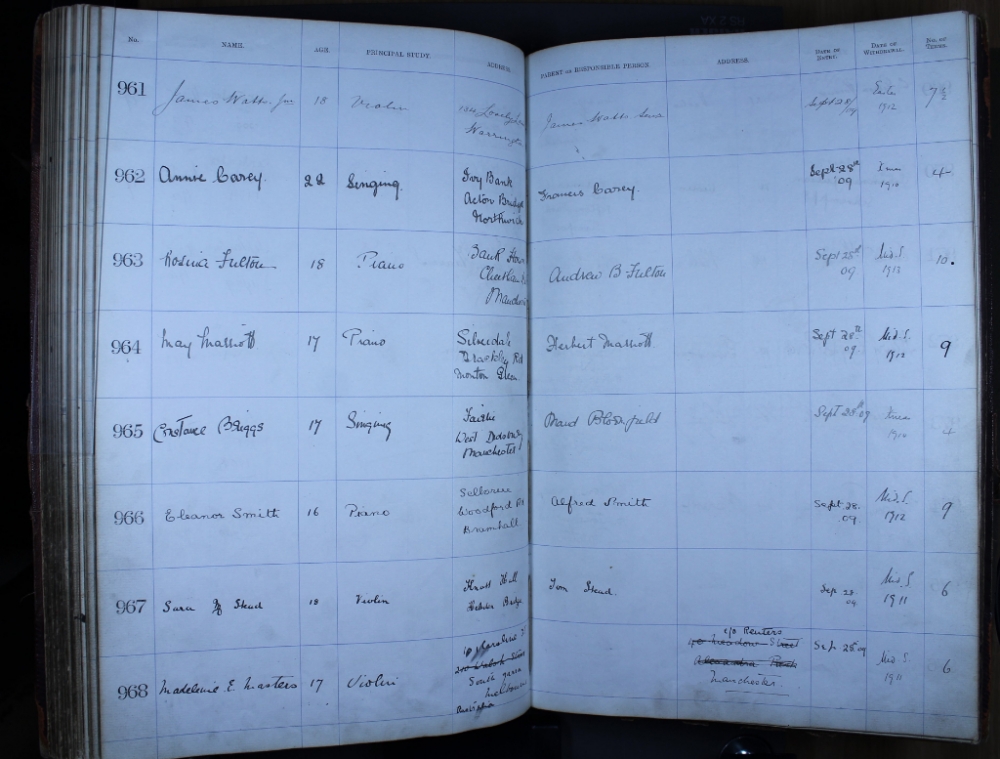 No. NAME. AGE. PRINCIPAL STUDY. ADDRESS. PARENT OR RESPONSIBLE PERSON. ADDRESS. DATE OF ENTRY. DATE OF WITHDRAWAL. No. OF TERMS.
961 James Watts Junr 18 Violin James Watts Senr Sept 28/09 Easter 1912 7½
Warrington
962 Annie Carey. 22 Singing. Ivy Bank Francis Carey. Sept 28th 09 June 1910 4
Acton Bridge
Northwich
963 Rosina Fulton 18 Piano Bank House Andrew B Fulton Sept 28th 09 Mid.S 1913 10.
Cheetham
Manchester
964 May Marriott 17 Piano Silverdale Herbert Marriott Sept 28th 09. Mid.S. 1912 9
Brackley Rd
Monton Green
965 Constance Briggs 17 Singing Sept 28th 09 June 1910 4
West Didsbury
Manchester
966 Eleanor Smith 16 Piano Alfred Smith Sept 28. 09. Mid.S. 1912 9
Woodford Rd
Bramhall
967 Sara Stead 18 Violin Hall Tom Stead. Sep 28. 09 Mid S 1911 6
Hebden Bridge
968 Madeleine E. Masters 17 Violin c/o Renters Sept 28th 09 Mid S. 1911 6
Meadow Street
South Yarra Alexandra Park
Melbourne Manchester.
Australia